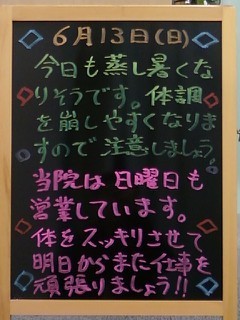 6月13日(日)
今日も蒸し暑くな
りそうです。体調
を崩しやすくなりま
すので注意しましょう。
当院は日曜日も
営業しています。
体をスッキリさせて
明日からまた仕事を
頑張りましょう!!